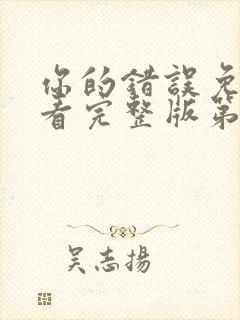 你的錯誤免
看完整版第
吴志揚